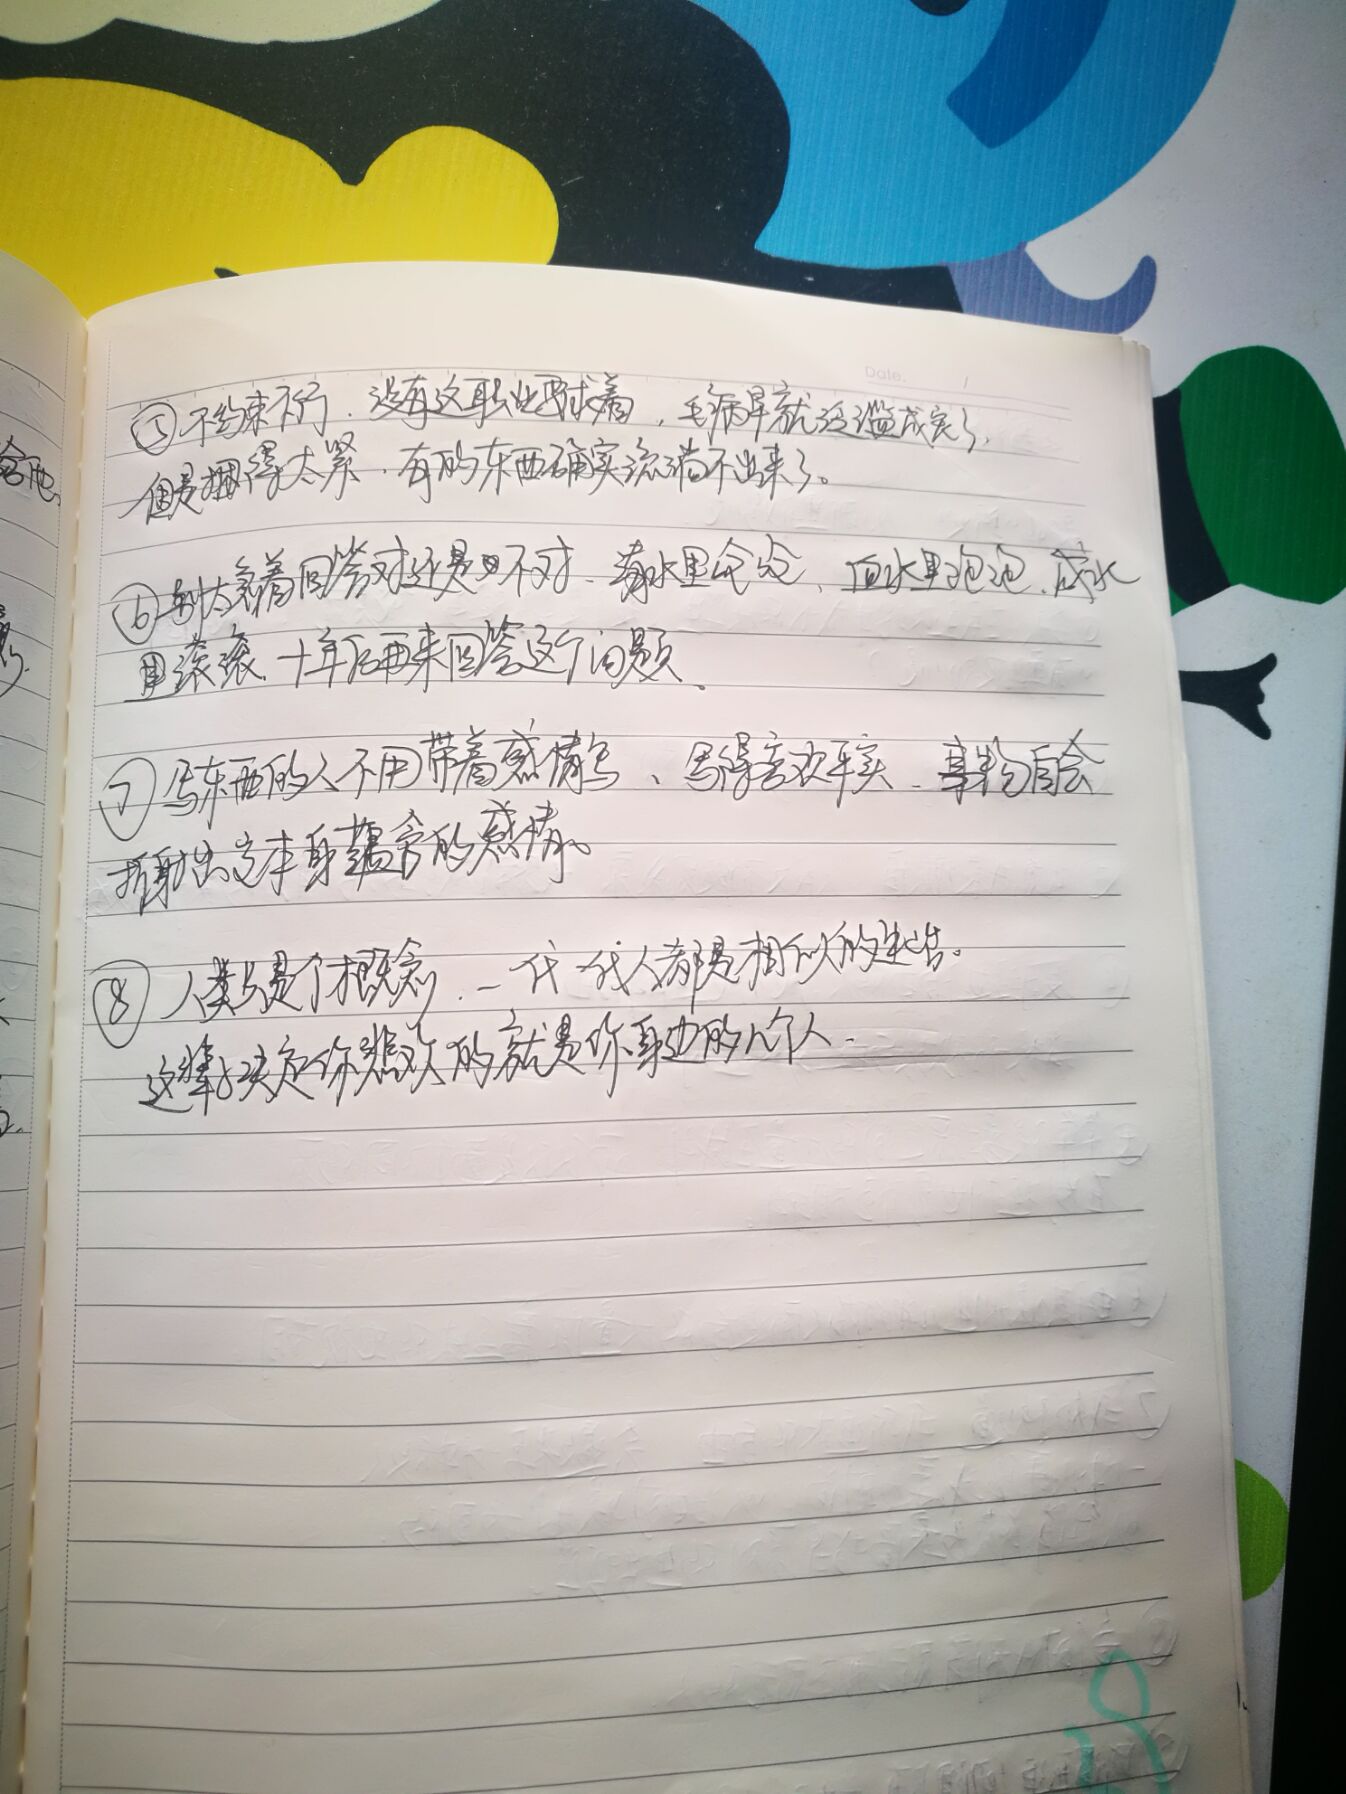 Date.
⑤不约束不行，没有这职业要求着，毛病早就泛滥成灾了，
但是捆得太紧，有的东西确实流淌不出来了。
⑥别太急着回答对还是不对、清水里呛呛、血水里泡泡、咸水
里滚滚、十年后再来回答这个问题、
⑦写东西的人不用带着感情写、写得客观平实、事物自会
折射出它本身蕴含的感情。
⑧人类只是个概念，一代一代人都是相似的生活。
这辈子决定你悲欢的就是你身边的几个人.